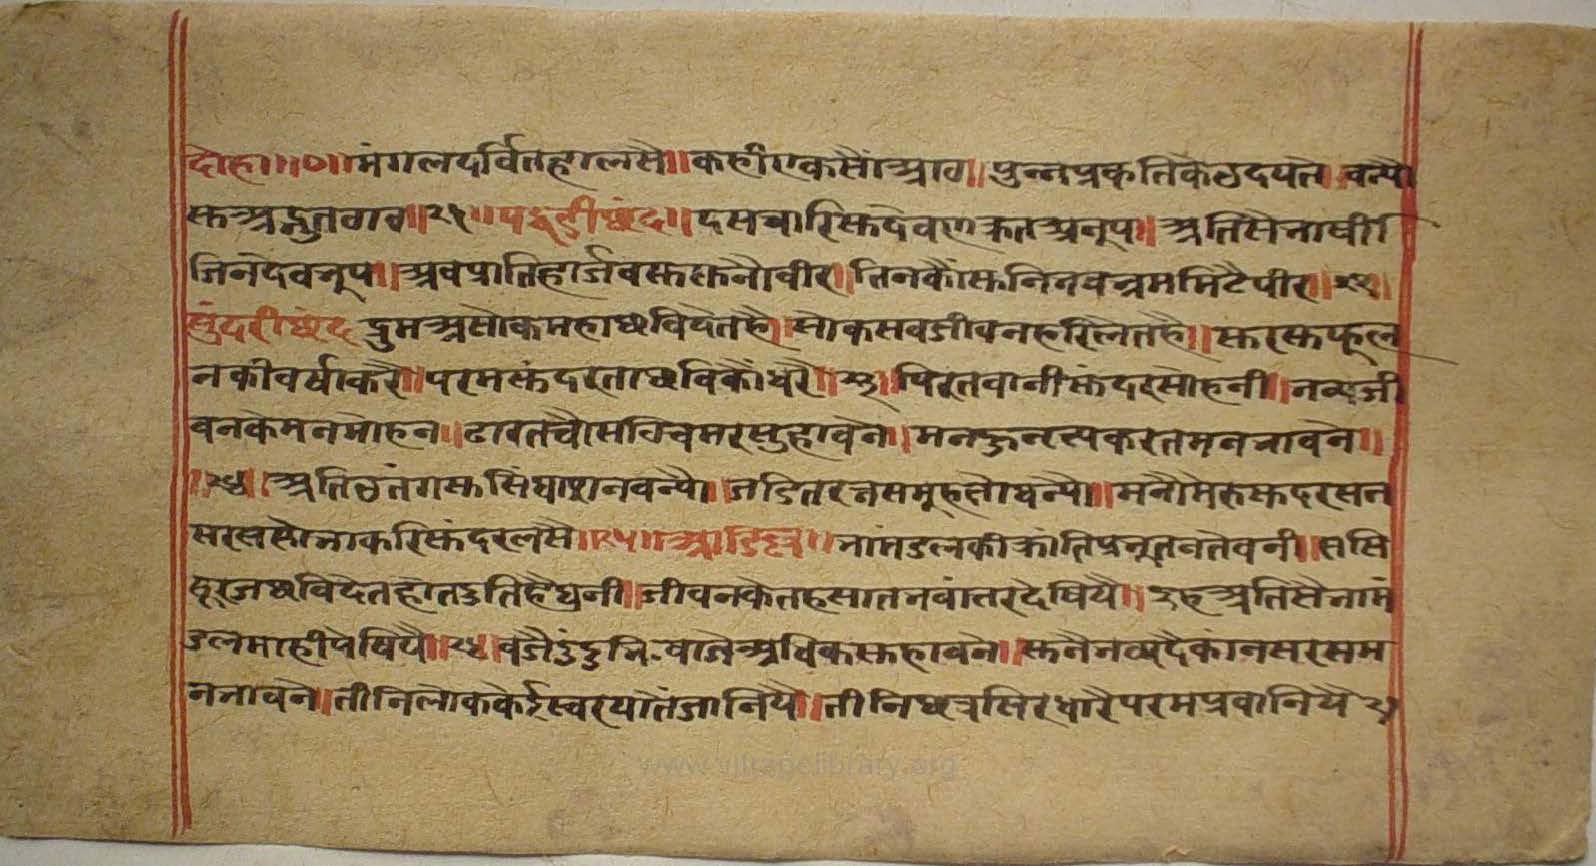 दोहा॥०॥मंगलदर्वितहालसै॥कहौंएकसौंआठ॥पुन्नप्रकृतिकेउदयतै॥वन्यौ
सुअद्भुतठाठ॥२१॥पद्धडीछंद॥दसचारिसुदेवणकृतअनूप॥अतिसैभाषी
जिनदेवभूप॥अवप्रातिहार्जवसुसुनौवीर॥तिनकौंसुनितवभ्रममिटैपीर॥२२॥
सुंदरीछंद द्रुमअसोकमहाछविदेतहै॥सोकसवजीवनहरिलेतहै॥सुरसुफूल
नकीवर्षाकरै॥परमसुंदरताछविकौंधरै॥२३॥षिरतवानीसुंदरसोहनी॥भव्यजी
वनकेमनमोहन॥ढारतचौसठिचमरसुहावने॥मनकुनृत्यकरतमनभावने॥
॥२४॥अतिउतंगसुसिंघाशनवन्यौ॥जडितरत्नसमूहसोंघन्यौ॥मनौमेरुसुदरसन
सरस सोभाकरिसुंदरलसै॥२५॥अडिल्ल॥भामंडलकीक्रांतिप्रभूतनतेवनी॥ससि
सूरजछविदेतहोतदुतिहैघनी॥जीवनकेतहसातभवांतरदेषियै॥२६अतिसैभामं
डलमाहीपेषियै॥२५॥वजैदुंदुभि-वाजेअधिकसुहावने॥सुनैभव्यदैकानसरसम
नभावने॥तीनिलोककेईस्वरयातैंजानियै॥तीनिछत्रसिरधारैपरमप्रवानियै २६
www.vitragelibrary.org